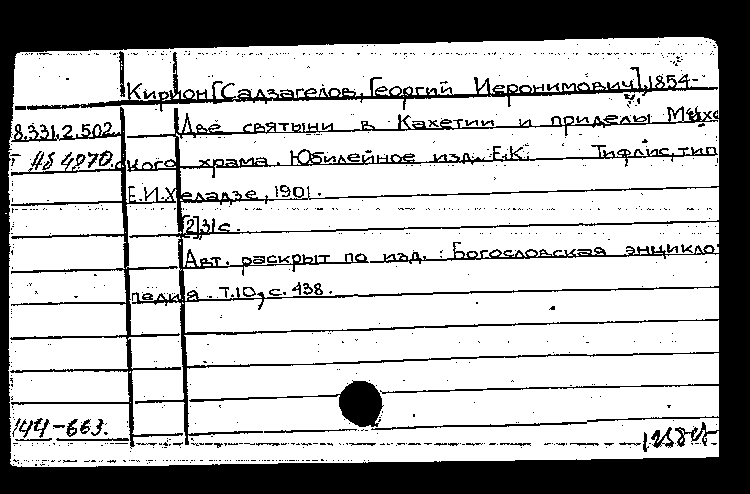 Кирион [Садзагелов, Георгий Иеронимович], 1854-
8.331.2.502. Две святыни в Кахетии и приделы Мцхе
ского храма. Юбилейное изд. Е.К. Тифлис, тип
Е.И.Хеладзе, 1901.
[2],31 с.
Авт. раскрыт по изд.: Богословская энцикло
педия. Т.10, с. 438.
144-663.